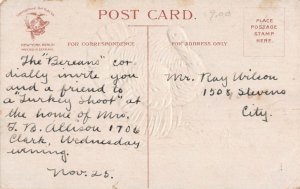 POST CARD.
9.00
NEW YORK, BERLIN
FOR CORRESPONDENCE
FOR ADDRESS ONLY
PLACE
POSTAGE
STAMP
HERE.
The "Bereans" cor-
dially invite you
and a friend to
a "Turkey Shoot" at
the home of Mrs.
F. B. Allison 1706
Clark, Wednesday
evening.
Nov. 25.
Mr. Ray Wilson
1508, Stevens
City.